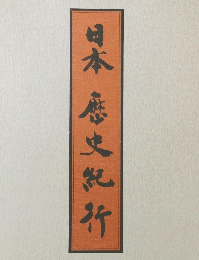 日本歴史紀行